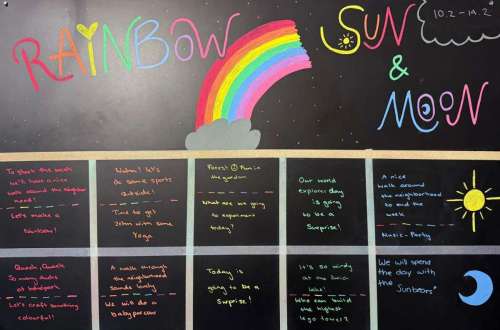 RAINBOW
SUN
&
MOON
10.2 - 14.2
To start the week
we'll have a nice
walk around the neighbor
hood!
Let's make a
Wahm! let's
do some sports
outside!
Time to get
Zehn with some
Yoga
Forest Fun in
the garden
What are we going
to experiment
today?
Our world
explorer day
is going
to be a
Surprise!
A nice
walk
around the
neighborhood
to end the
week
Music-Party
Quack, Quack
So many ducks
at
Let's craft something
colourful!
A walk through
the neighborhood
sounds lovely
We will do a
babyparcour
Today is
going to be a
Surprise!
It's so windy
at the
lake!
Who can build
the highest
lego tower?
We will spend
the day with
the "Sunbears"